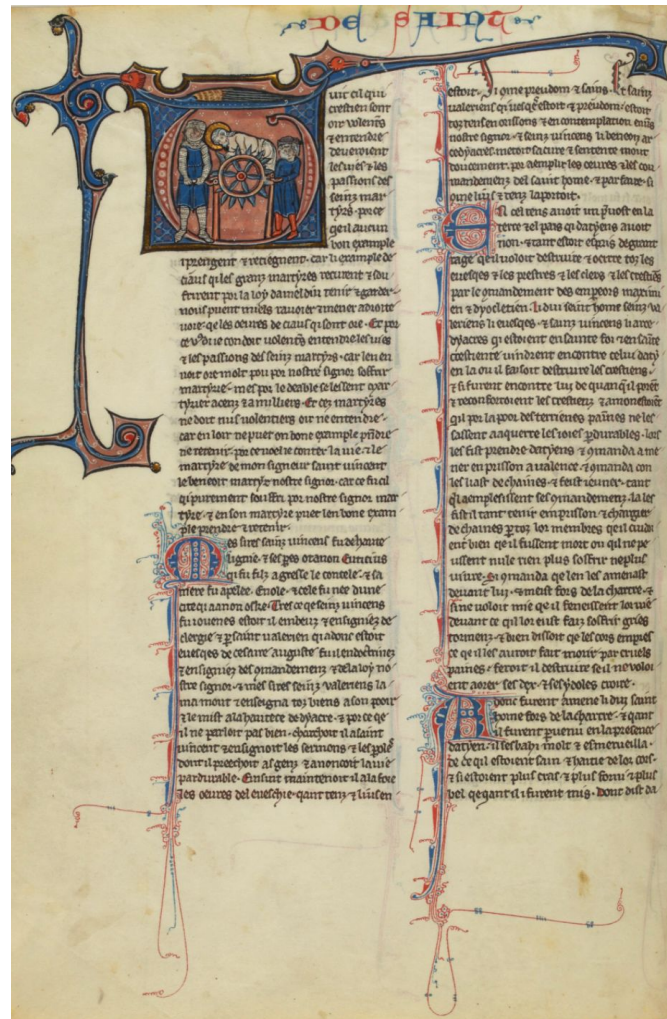 DE SAINT
uit cil qui
crestien sont
oir volentiers
& entendre
deueroient
les uies & les
passions des
seinz mar
tyrs. por ce
qe il aucun
bon example
i prengent & retiegnent. car li example de
ciaus qi les granz martyres recurent & sou
frirent por la loy dameldiu tenir & garder.
nous puent miels rauoier & mener a droite
uoie. qe les oeures de ciaus qi sont ore. Et por
& les passions des seinz martyrs. car len en
uoit ore molt pou por nostre signor soffrir
martyrie. mes por le deable se lessent mar
tyrier a cenz & a milliers. Et cez martyres
ne doit nus volentiers oir ne entendre.
car en loir ne puet on bone example prēdre
ne retenir. por ce uoel ie conter la uie & le
martyre de mon signeur saint uincent
le benoit martyr nostre signor. car ce fu cil
qi purement souffri por nostre signor mar
tyre. & en son martyre puet len bone exam
ple prendre & retenir.
Mes sires sainz uincens fu de haute
ligniee. & ses peres ot a non Euticius
qi fu filz agresse le contele. & sa
mere fu apelee Enole. & cele fu nee dune
cite qi a a non oske. Tres ce qe seinz uincens
fu iouenes estoit il embeuz & ensigniez de
clergie & p saint ualerien qi adonc estoit
euesqes de cesaire auguste fu il endoctrinez
& ensigniez des cōmandemenz & de la loy no
stre signor. & mes sires seinz ualeriens la
ma mout & enseigna toz biens a son pooir
& le mist a la hautece de dyacre. & por ce qe
il ne parloit pas bien. charchoit il a saint
uincent & ensignoit les sermons & les poles
dont il preechoit as genz & anoncoit la uie
pardurable. Ensint maintenoit il a la foie
les oeures del eueschie. qant tenz & liu en
estoit. Si ome preudom & sains. Et sainz
ualeriens qi uesqes estoit & preudom. estoit
toz tens en orisons & en contemplation enūs
nostre signor. & seinz uincens li benoiz ar
cedyacres. metoit sa cure & s'entente mout
doucement. por aemplir les oeures & les com
mandemenz del saint home. & par faire. si
ome lius & tenz laportoit.
En cel tens auoit un puost en la
terre & el pais qi datyens auoit
non. & tant estoit espris de grant
rage qe il uoloit destruire & ocirre toz les
euesqes & les prestres & les clers & les crestiēs
par le cōmandement des emperors maximi
en & dyocletien. Li dui seint home seinz va
leriens li euesqes. & sainz uincens li arce
dyacres qi estoient en sainte foi & en sainte
crestiente uindrent encontre celui daty
en la ou il faisoit destruire les crestiens.
& si furent encontre lui de quanq il porēt
& reconfortoient les crestiens & amonestoiēt
qil por la poor des terrienes paines ne les
sassent a aquerre les ioies pdurables. Lors
les fist prendre datyens & cōmanda a me
ner en prison a ualence. & cōmanda con
les liast de chaines. & feist ieuner. tant
qi aemplesissent ses cōmandemenz. Ia les
fist il tant tenir en prisson & charger
de chaines p toz lor membres qe il cuidi
ent bien qe il fussent mort ou qil ne pe
ussent nule rien plus soffrir ne plus
uiure. Si cōmanda qe len les amenast
deuant lui. & meist fors de la chartre. &
si ne uoloit mie qe il fenessent lor uie
deuant ce qil lor eust faiz soffrir griés
tormenz. & bien dissoit qe les cors
ce qe il les auroit fait mourir par cruels
paines. feroit il destruire se il ne uoloi
ent aorer ses dex. & ses ydoles croire.
Adonc furent amene li dui saint
home fors de la chartre. & qant
il furent puenu en la presence
datyen. il ses bahi molt & esmerueilla.
de ce qil estoient sain. & haitie de lor cors.
& si estoient plus cras & plus forni & plus
bel qe qant il i furent mis. Dont dist da